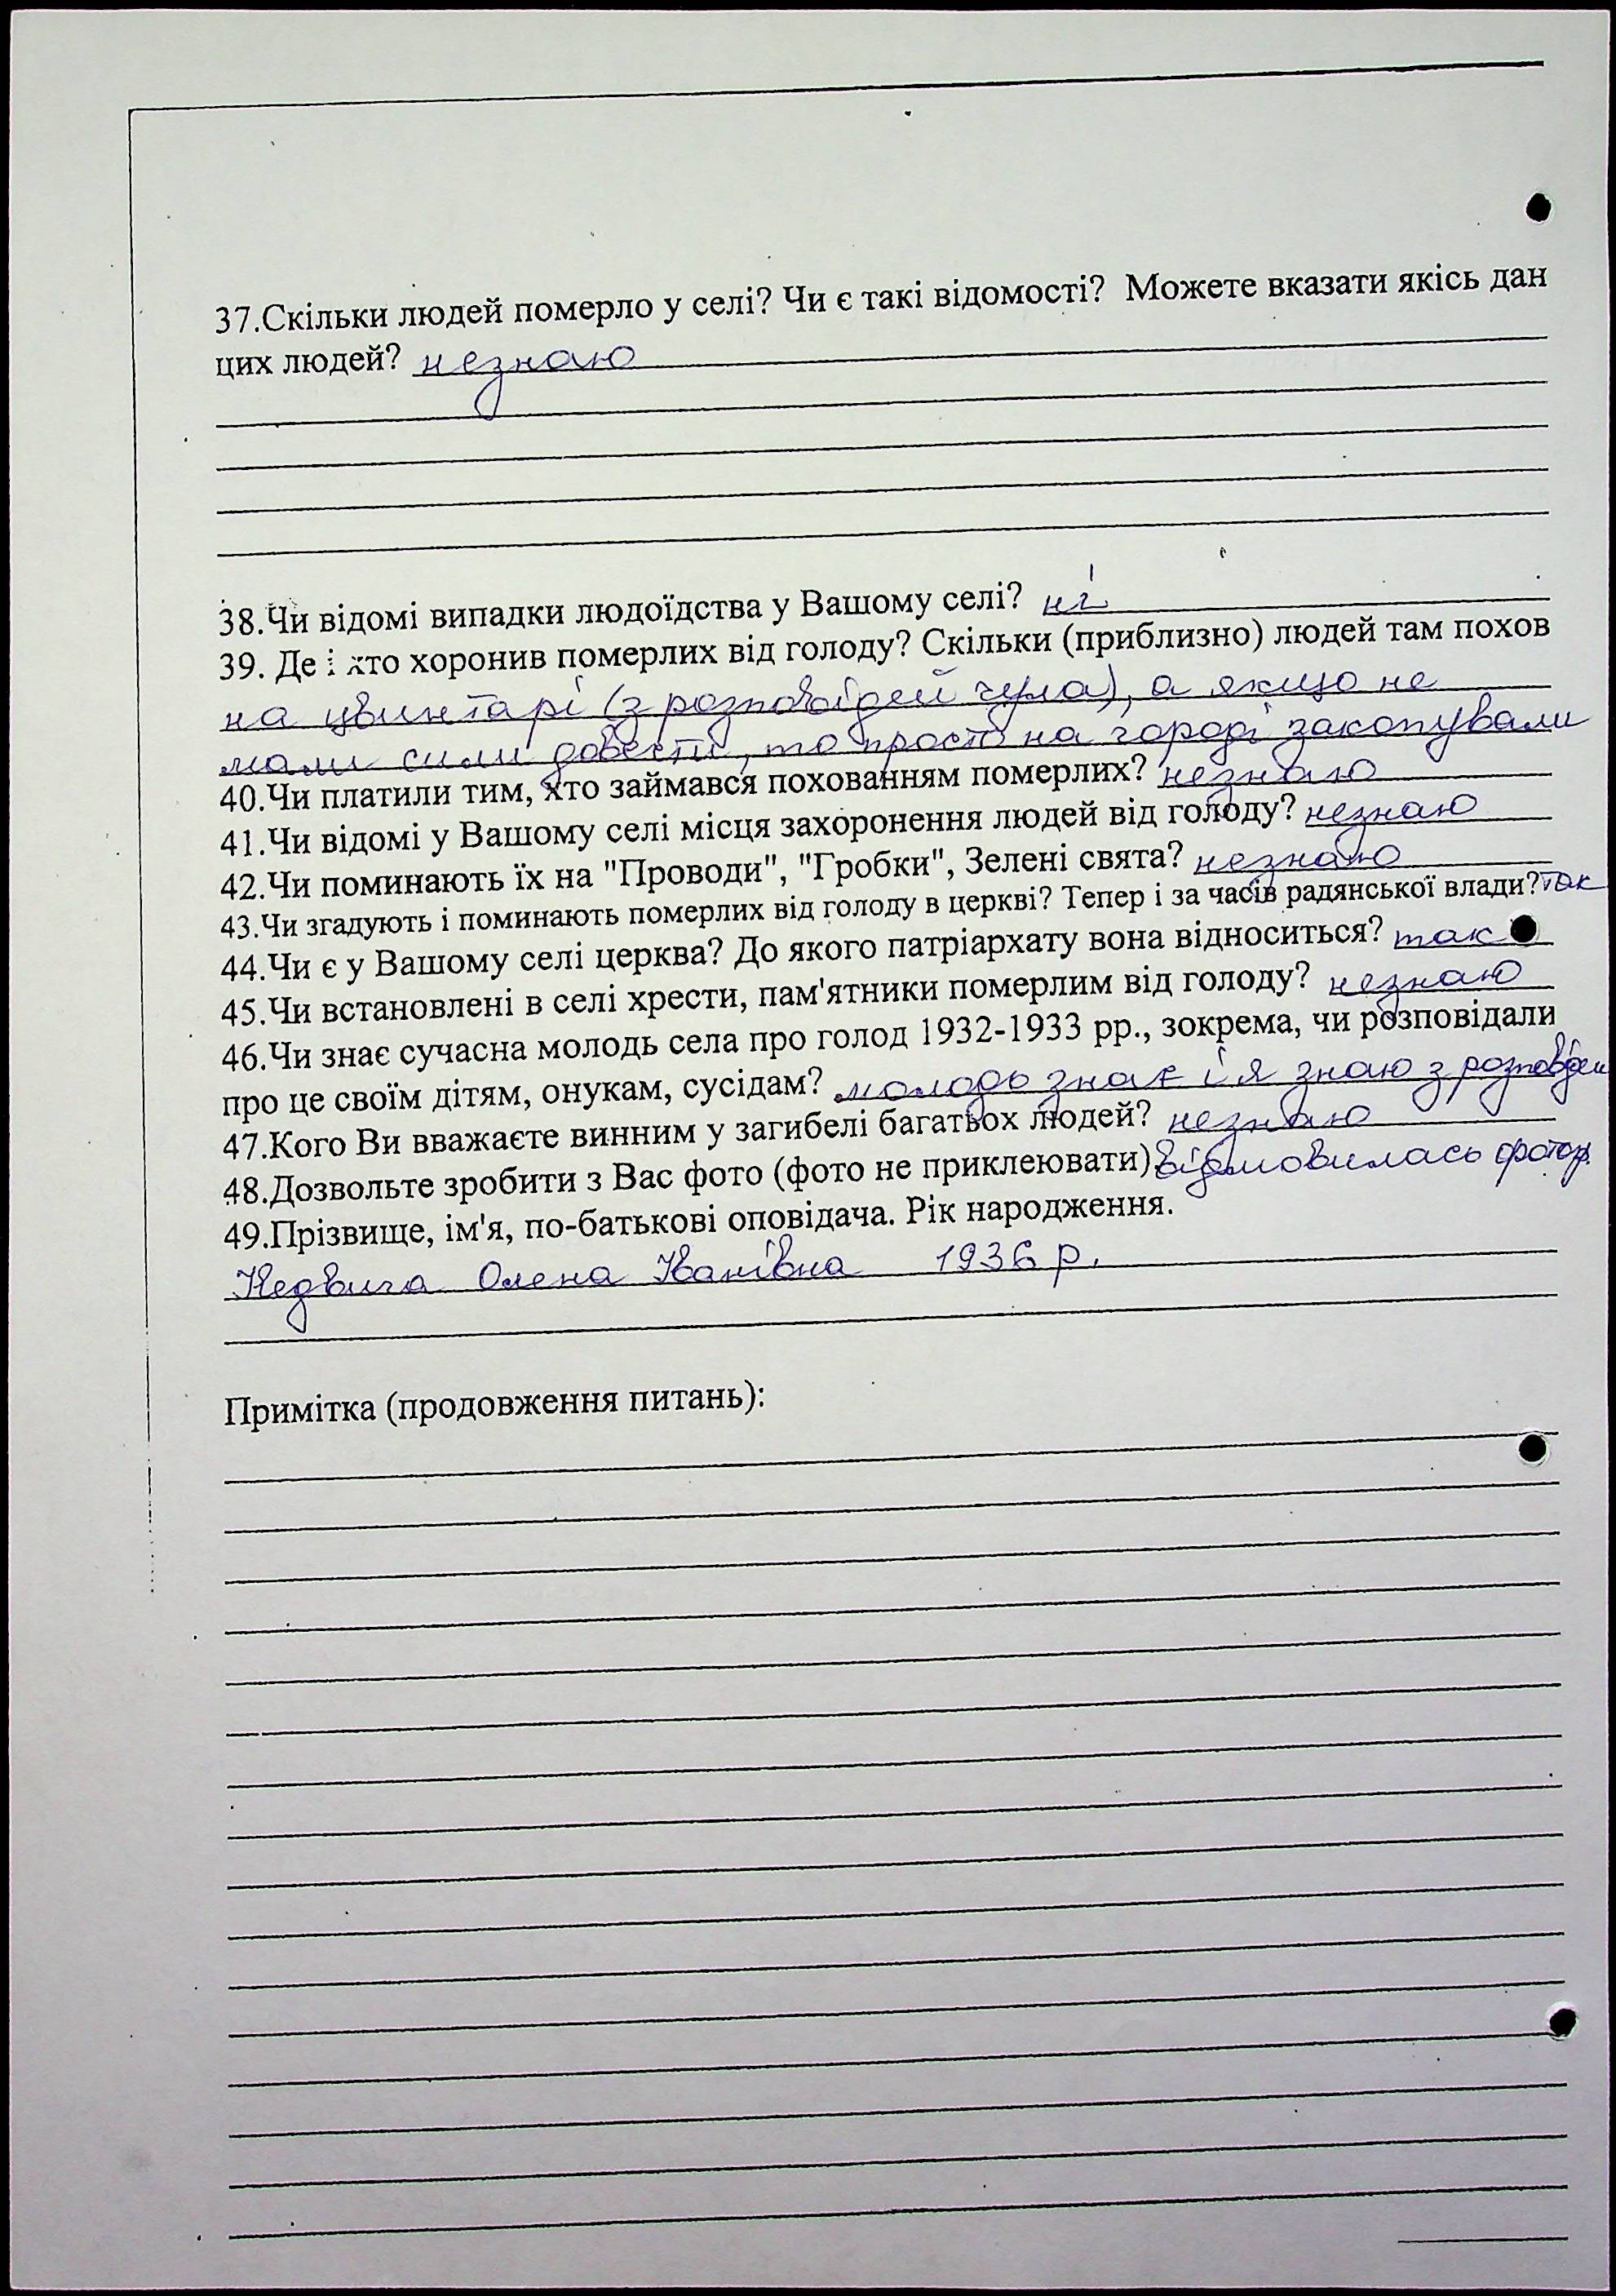 37.Скільки людей померло у селі? Чи є такі відомості? Можете вказати якісь дан
цих людей? незнаю
38.Чи відомі випадки людоїдства у Вашому селі? ні
39. Де і хто хоронив померлих від голоду? Скільки (приблизно) людей там похов
на цвинтарі (з розповідей чула), а якщо не
мали сили довести, то просто на городі закопували
40.Чи платили тим, хто займався похованням померлих? незнаю
41.Чи відомі у Вашому селі місця захоронення людей від голоду? незнаю
42.Чи поминають їх на "Проводи", "Гробки", Зелені свята? незнаю
43.Чи згадують і поминають померлих від голоду в церкві? Тепер і за часів радянської влади? так
44.Чи є у Вашому селі церква? До якого патріархату вона відноситься? так
45.Чи встановлені в селі хрести, пам'ятники померлим від голоду? незнаю
46.Чи знає сучасна молодь села про голод 1932-1933 рр., зокрема, чи розповідали
про це своїм дітям, онукам, сусідам? молодь знає і я знаю з розповідей
47.Кого Ви вважаєте винним у загибелі багатьох людей? незнаю
48.Дозвольте зробити з Вас фото (фото не приклеювати) відмовилась
49.Прізвище, ім'я, по-батькові оповідача. Рік народження.
Недвига Олена Іванівна 1936 р.
Примітка (продовження питань):